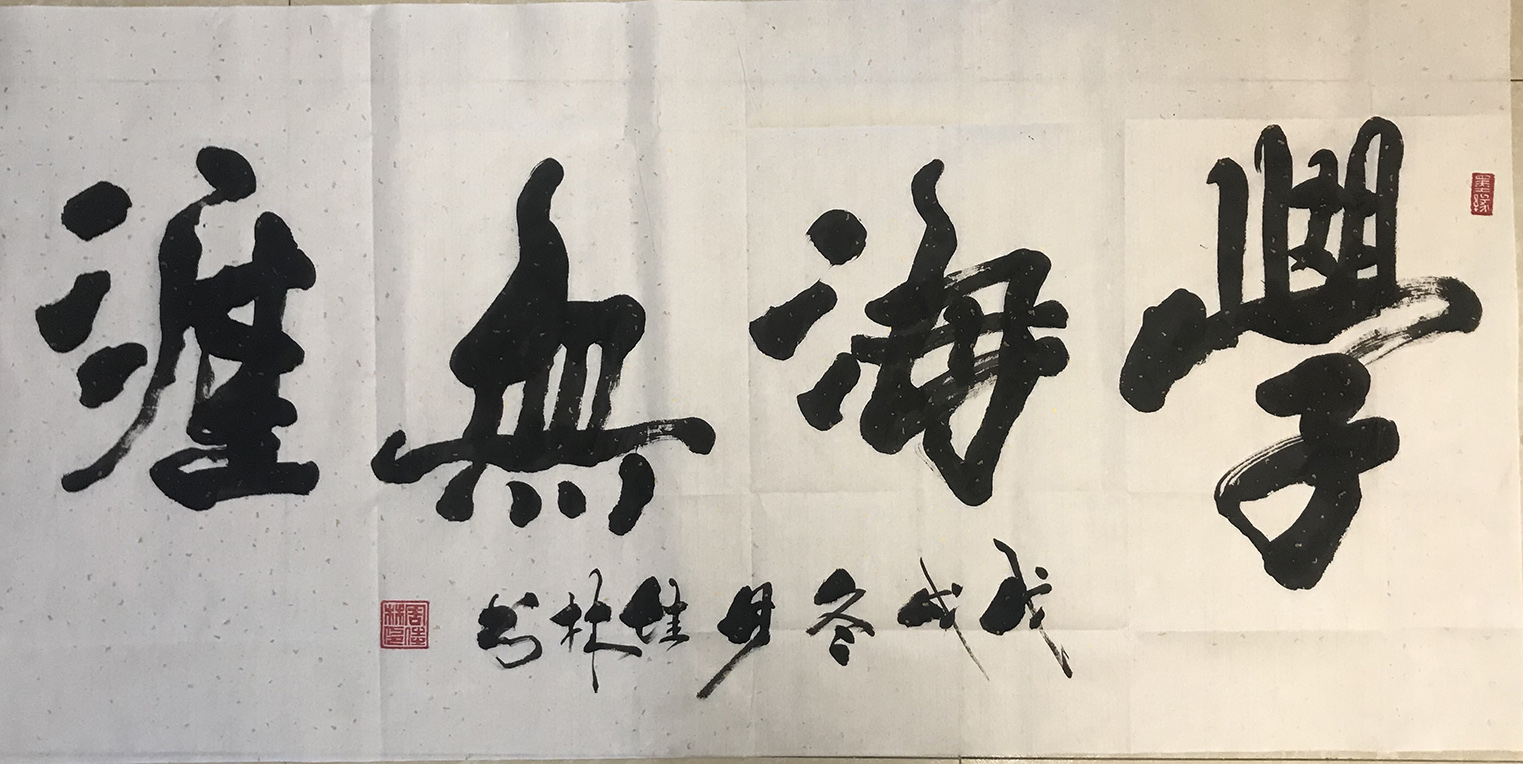 墨缘
學海無涯
戊戌冬月佳林书